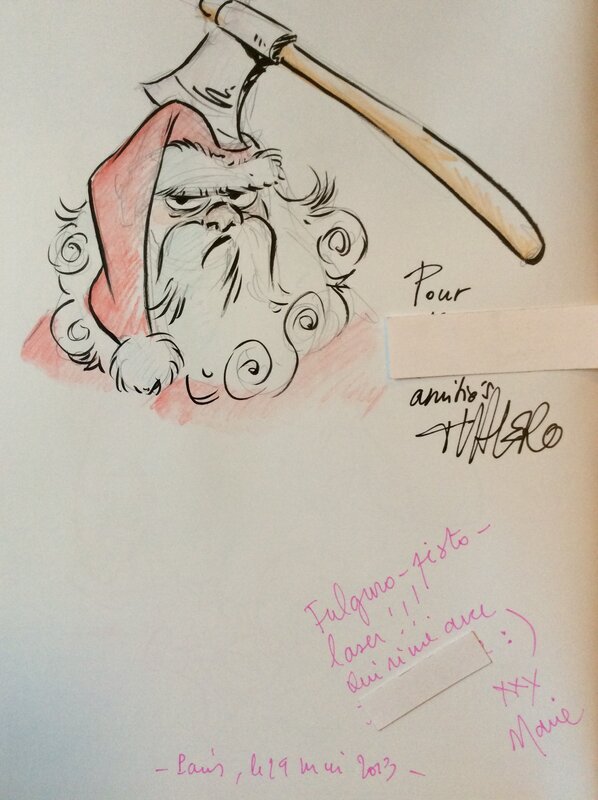 Pour
amitiés
Fulguro-fisto-
laser !!!
qui rime avec
:)
xxx
Marie
- Paris, le 29 mai 2013 -